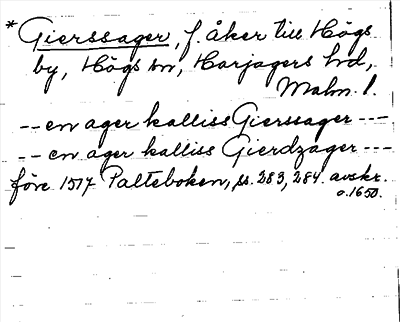 * Gierssager, f. åker till Högs
by, Högs sn, Harjagers hd,
Malm. l.
-- en ager kalliss Gierssager ---
-- en ager kalliss Gierdzager ---
före 1517 Palteboken, ss. 283, 284. avskr.
o. 1650.